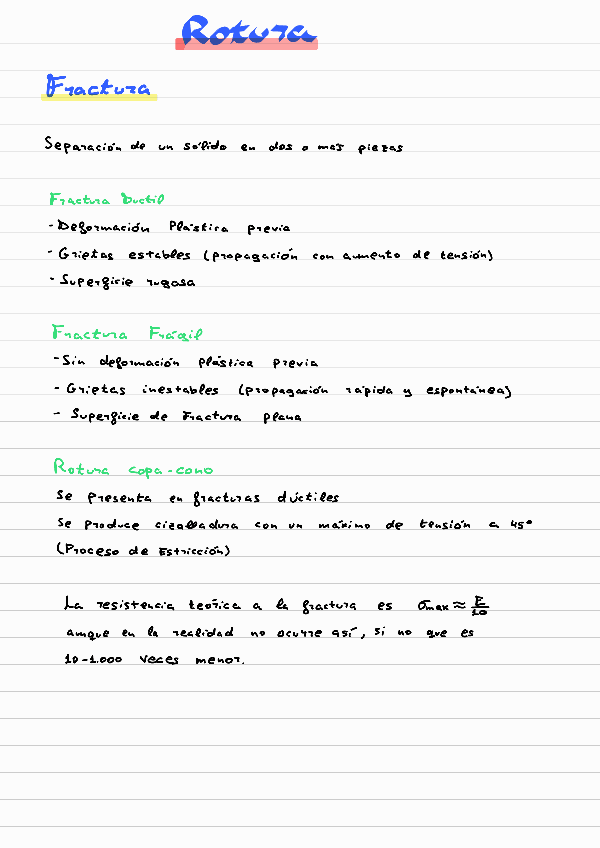 Rotura
Fractura
Separación de un sólido en dos o más piezas
Fractura Ductil
- Deformación Plástica previa
- Grietas estables (propagación con aumento de tensión)
- Superficie rugosa
Fractura Frágil
- Sin deformación plástica previa
- Grietas inestables (propagación rápida y espontánea)
- Superficie de Fractura plana
Rotura copa-cono
Se presenta en fracturas dúctiles
Se produce cizalladura con un máximo de tensión a 45°
(Proceso de Estricción)
La resistencia teórica a la fractura es σmax ≈ E/10
aunque en la realidad no ocurre así, si no que es
10-1.000 veces menor.